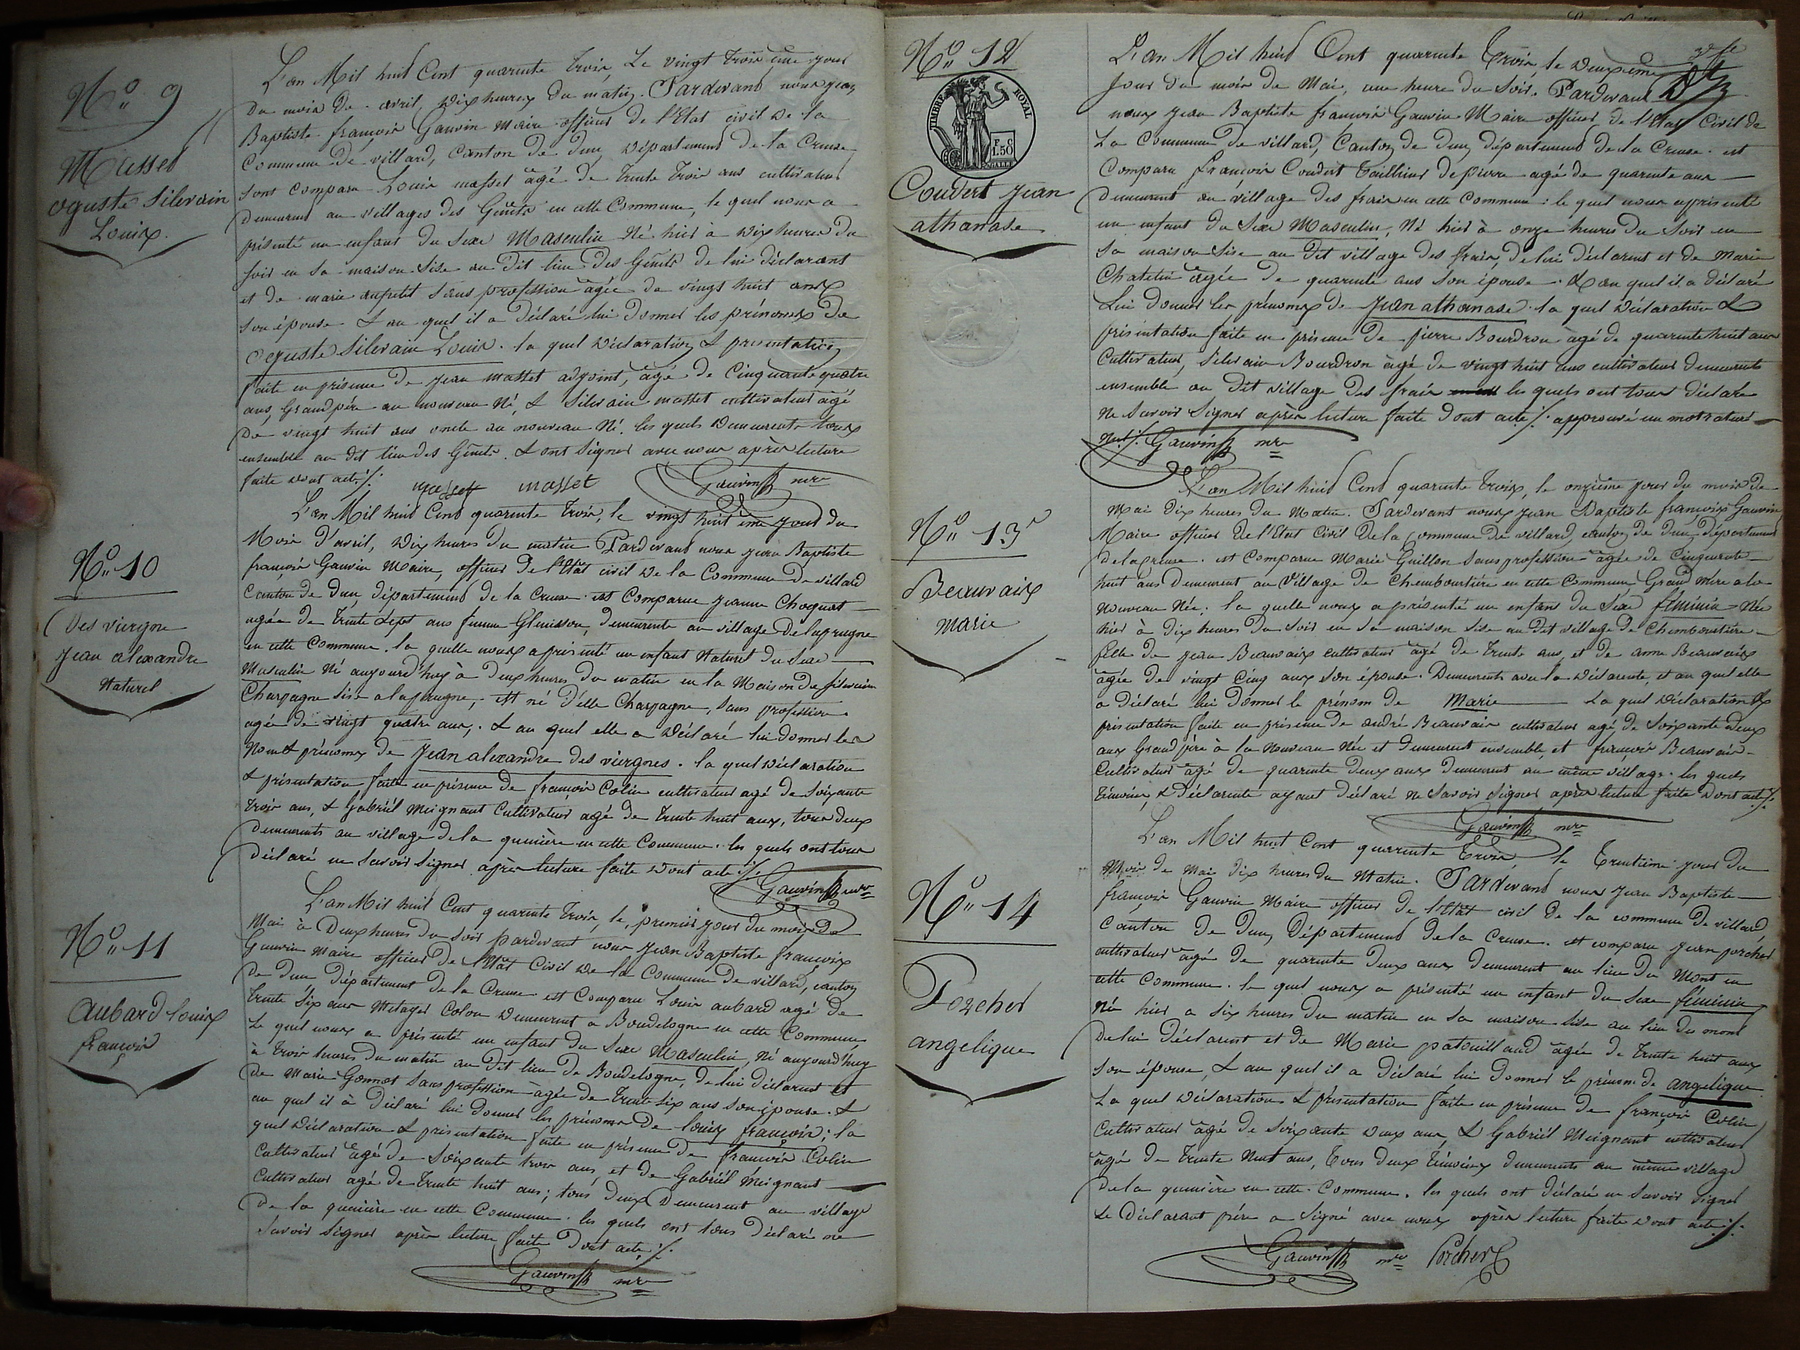 N° 9
Masset
oguste Silvain
Louis.
L'an Mil huit Cent quarante trois, Le vingt troisième jour
du mois de avril, dix heures du matin. Pardevant nous jean
Baptiste françois Gauvin Maire officier de l'Etat civil de la
Commune de villard, Canton de dun département de la Creuse
sont comparu Louis masset âgé de trente trois ans cultivateur
demeurant au villages des Genêts en cette Commune, le quel nous a
présenté un enfant du sexe Masculin Né hier à dix heures du
soir en sa maison sise au dit lieu des Genêts de lui déclarant
et de marie aupetit sans profession âgée de vingt huit ans
son épouse & au quel il a déclaré lui donner les prénoms de
oguste Silvain Louis. la quel déclaration & présentation
faite en présence de jean masset adjoint, âgé de Cinquante quatre
ans, Grand père au nouveau né, & Silvain masset cultivateur âgé
de vingt huit ans oncle au nouveau Né. les quels demeurents tous
ensemble au dit lieu des Genêts. & ont signer avec nous après lecture
faite dont acte ./. masset masset Gauvin mre
N° 10
des viergne
jean alexandre
Naturel
L'an Mil huit Cent quarante trois, le vingt huit ème jour du
Mois d'avril, dix heures du matin Pardevant nous jean Baptiste
françois Gauvin Maire, officier de l'Etat civil de la Commune de villard
Canton de Dun, département de la Creuse. est Comparue jeanne Choquet
agée de trente sept ans femme Glenisson, demeurente au village de laprugne
en cette Commune. la quelle nous a présenté un enfant Naturel du sexe
Masculin Né aujourd'huy à deux heures du matin en la Maison de silvain
Charpagne sise a laprugne, est né d'elle Charpagne, sans profession
agée de vingt quatre ans,. & au quel elle a déclaré lui donner les
Nom & prénoms de jean alexandre des viergnes. la quel déclaration
& présentation faite en présence de françois Colin cultivateur agé de soixante
trois ans, & Gabriël Meignant Cultivateur agé de trente huit ans, tous deux
demeurents au village de la gunière en cette Commune. les quels ont tous
déclaré ne savoir signer après lecture faite dont acte ./.
Gauvin mre
N° 11
aubard louis
françois
L'an Mil huit Cent quarante trois, le premier jour du mois de
Mai à deux heures du soir pardevant nous jean Baptiste françois
Gauvin Maire officier de l'Etat Civil de la Commune de villard, canton
de dun département de la Creuse est Comparu Louis aubard agé de
trente six ans Metayer Colon demeurent a Boudelogne en cette Commune
le quel nous a présenté un enfant du sexe Masculin, Né aujourd'huy
à trois heures du matin au dit lieu de Boudelogne, de lui déclarent et
de Marie Gonnot sans profession âgée de trente six ans son épouse. &
au quel il à déclaré lui donner les prénoms de louis françois; la
quel déclaration & présentation faite en présence de françois Colin
Cultivateur âgé de soixante trois ans, et de Gabriël Meignant
Cultivateur agé de trente huit ans; tous deux demeurent au village
de la gunière en cette Commune. les quels ont tous déclaré ne
savoir signer après lecture faite dont acte ./.
Gauvin mre
N° 12
TIMBRE ROYAL
Coudert jean
athanase
L'an Mil huit Cent quarente trois, le deuxième
jour du mois de Mai, une heure du soir. Pardevant
nous jean Baptiste françois Gauvin Maire officier de l'Etat Civil de
la Commune de villard, Canton de dun, département de la Creuse. est
Comparu françois Coudert tailleur de pierre agé de quarente ans
demeurent au village des frais en cette Commune: le quel nous a présenté
un enfant du sexe Masculin, Né hier à onze heures du soir en
sa maison sise au dit village des frais, de lui déclarent et de marie
Chatelin agée de quarente ans son épouse. & au quel il a déclaré
lui donner les prénoms de jean athanase. la quel déclaration &
présentation faite en présence de pierre Bourdron agé de quarente huit ans
Cultivateur, silvain Bourdron agé de vingt huit ans cultivateur demeurents
ensemble au dit village des frais les quels ont tous déclaré
ne savoir signer après lecture faite dont acte ./. approuvé un mot raturé
nul ./. Gauvin mre
N° 13
Beauvaix
marie
L'an Mil huit Cent quarente trois, le onzième jour du mois de
Mai dix heures du Matin. Pardevant nous jean Baptiste françois Gauvin
Maire officier de l'Etat Civil de la Commune de villard, canton de dun, département
de la Creuse. est Comparue Marie Guillon sans profession agée de Cinquente
huit ans demeurent au village de Chemboursière en cette Commune Grand mère a la
nouveau Née; la quelle nous a présenté un enfant du sexe féminin Née
hier à dix heures du soir en sa maison sise au dit village de Chemboursière
fille de jean Beauvaix cultivateur agé de trente ans, et de anne Beauvaix
agée de vingt Cinq ans son épouse. Demeurents avec la déclarente, et au quel elle
a déclaré lui donner le prénom de Marie la quel déclaration &
présentation faite en présence de andré Beauvais cultivateur agé de soixante deux
ans Grand père à la Nouveau Née et demeurent ensemble, et françois Beauvais
Cultivateur âgé de quarente deux ans demeurent au même village. les quels
témoins, & déclarente ayant déclaré ne savoir signer après lecture faite dont acte ./.
Gauvin mre
N° 14
Porcher
angelique
L'an Mil huit Cent quarente trois le trentième jour du
Mois de Mai dix heures du Matin. Pardevant nous jean Baptiste
françois Gauvin Maire officier de l'Etat civil de la commune de villard,
Canton de dun, Département de la Creuse. est comparu jean porcher
cultivateur agé de quarente deux ans demeurent au lieu du Mont en
cette Commune. le quel nous a présenté un enfant du sexe féminin
né hier a six heures du matin en sa maison sise au lieu du mont
de lui déclarent et de Marie patouillaud agée de trente huit ans
son épouse, & au quel il a déclaré lui donner le prénom de angelique
la quel déclaration & présentation faite en présence de françois Colin
Cultivateur agé de soixante deux ans, & Gabriël Meignant cultivateur
âgé de trente Neuf ans, tous deux témoins demeurents au même village
de la gunière en cette Commune. les quels ont déclaré ne savoir signer
Le déclarant père a signé avec nous après lecture faite dont acte ./.
Gauvin mre Porcher